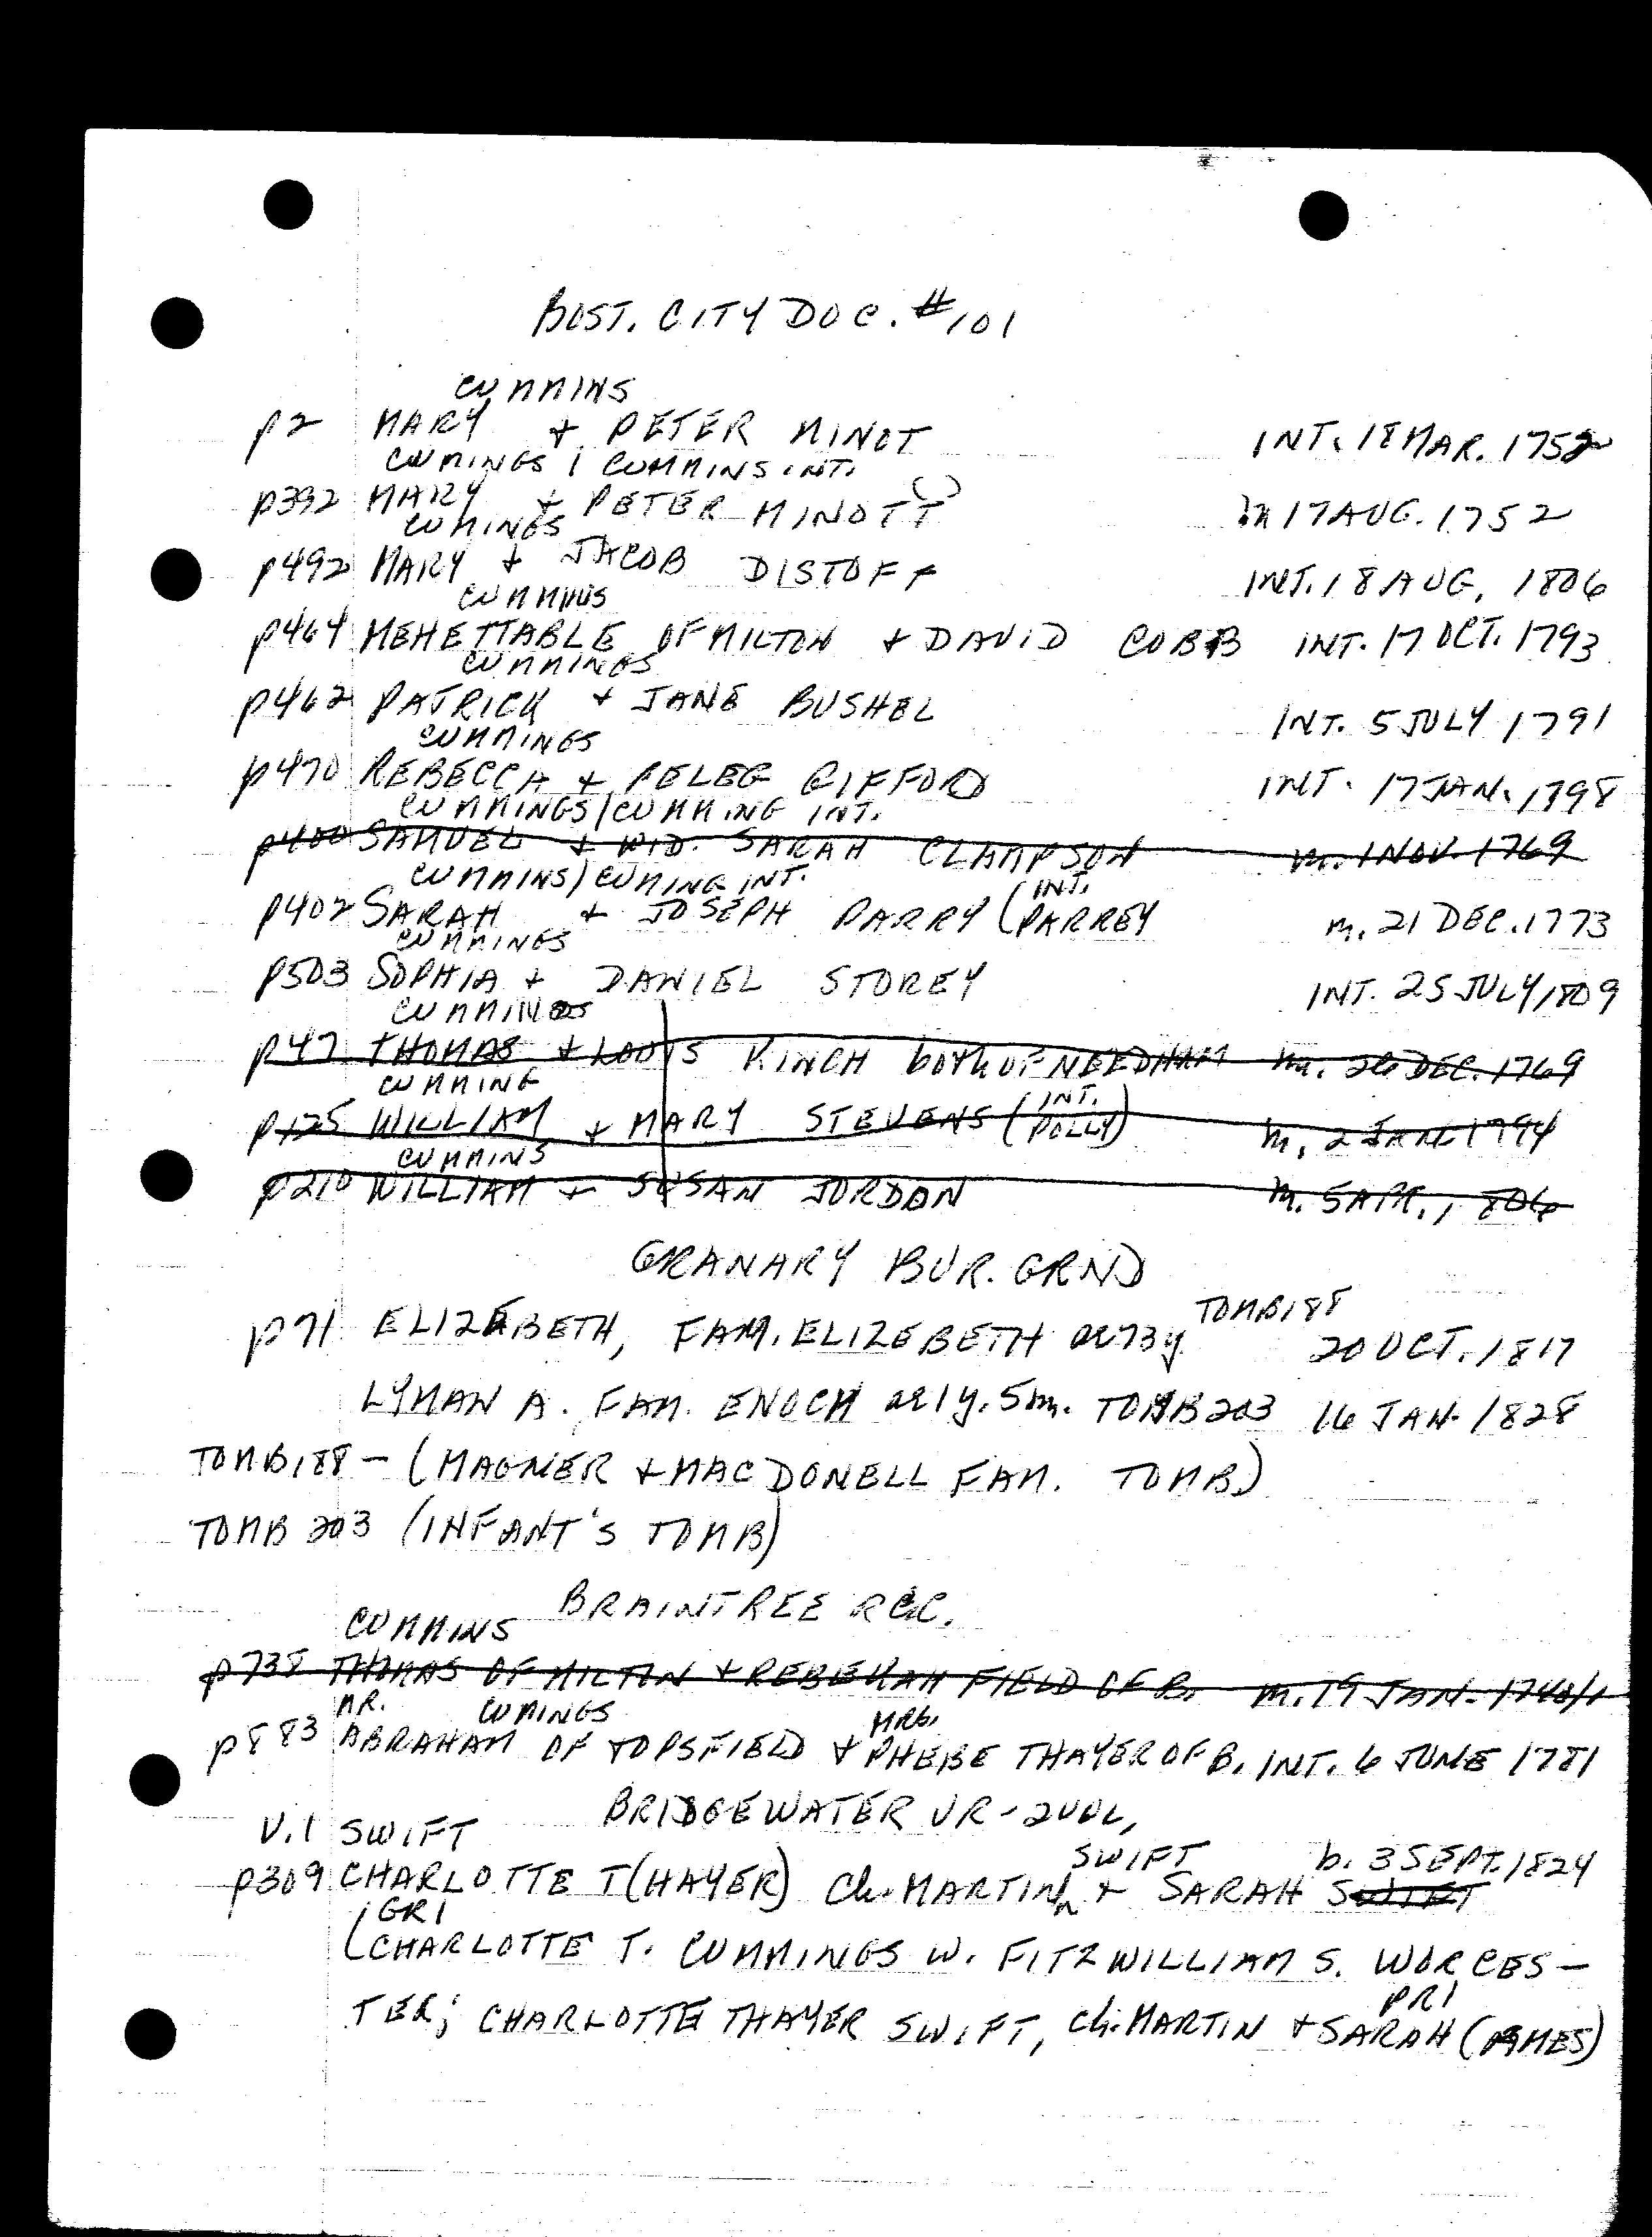 BOST. CITY DOC. #101
CUMMINS
p2 MARY + PETER MINOT INT. 18 MAR. 1752
CUMINGS / CUMMINS INT.
p392 MARY + PETER MINOTT m 17 AUG. 1752
CUMINGS
p492 MARY + JACOB DISTOFF INT. 18 AUG. 1806
CUMMINS
p464 MEHETTABLE OF MILTON + DAVID COBB INT. 17 OCT. 1793
CUMMINGS
p462 PATRICK + JANE BUSHEL INT. 5 JULY 1791
CUMMINGS
p470 REBECCA + PELEG GIFFORD INT. 17 JAN. 1798
CUMMINGS/CUMMING INT.
p400 SAMUEL + WID. SARAH CLAMPSON m. 1 NOV. 1769
CUMMINS/CUMING INT.
INT.
p402 SARAH + JOSEPH PARRY (PARREY m. 21 DEC. 1773
CUMMINGS
p503 SOPHIA + DANIEL STOREY INT. 25 JULY 1809
CUMMINGS
p47 THOMAS + LOUIS KINCH both OF NEEDHAM m. 26 DEC. 1769
CUMMING
INT.
p125 WILLIAM + MARY STEVENS (POLLY) m. 2 JAN 1794
CUMMINS
p210 WILLIAM + SUSAN JORDAN m. 5 APR. 1806
GRANARY BUR. GRND
TOMB 188
p71 ELIZEBETH, FAM. ELIZEBETH ae 73y 20 OCT. 1817
LYMAN A. FAM. ENOCH ae 1y. 5m. TOMB 203 16 JAN. 1828
TOMB 188 - (MAGNER + MACDONELL FAM. TOMB)
TOMB 203 (INFANT'S TOMB)
BRAINTREE REC.
CUMMINS
p738 THOMAS OF MILTON + REBEKAH FIELD OF B. m. 19 JAN. 1740/1
MR. CUMINGS MRS.
p883 ABRAHAM OF TOPSFIELD + PHEBE THAYER OF B. INT. 6 JUNE 1781
BRIDGEWATER VR - 2 VOL,
V.1 SWIFT
SWIFT b. 3 SEPT. 1824
p309 CHARLOTTE T(HAYER) Ch. MARTIN + SARAH SWIFT
GR1
(CHARLOTTE T. CUMMINGS W. FITZWILLIAM S. WORCES-
PR1
TER; CHARLOTTE THAYER SWIFT, ch. MARTIN + SARAH (AMES)